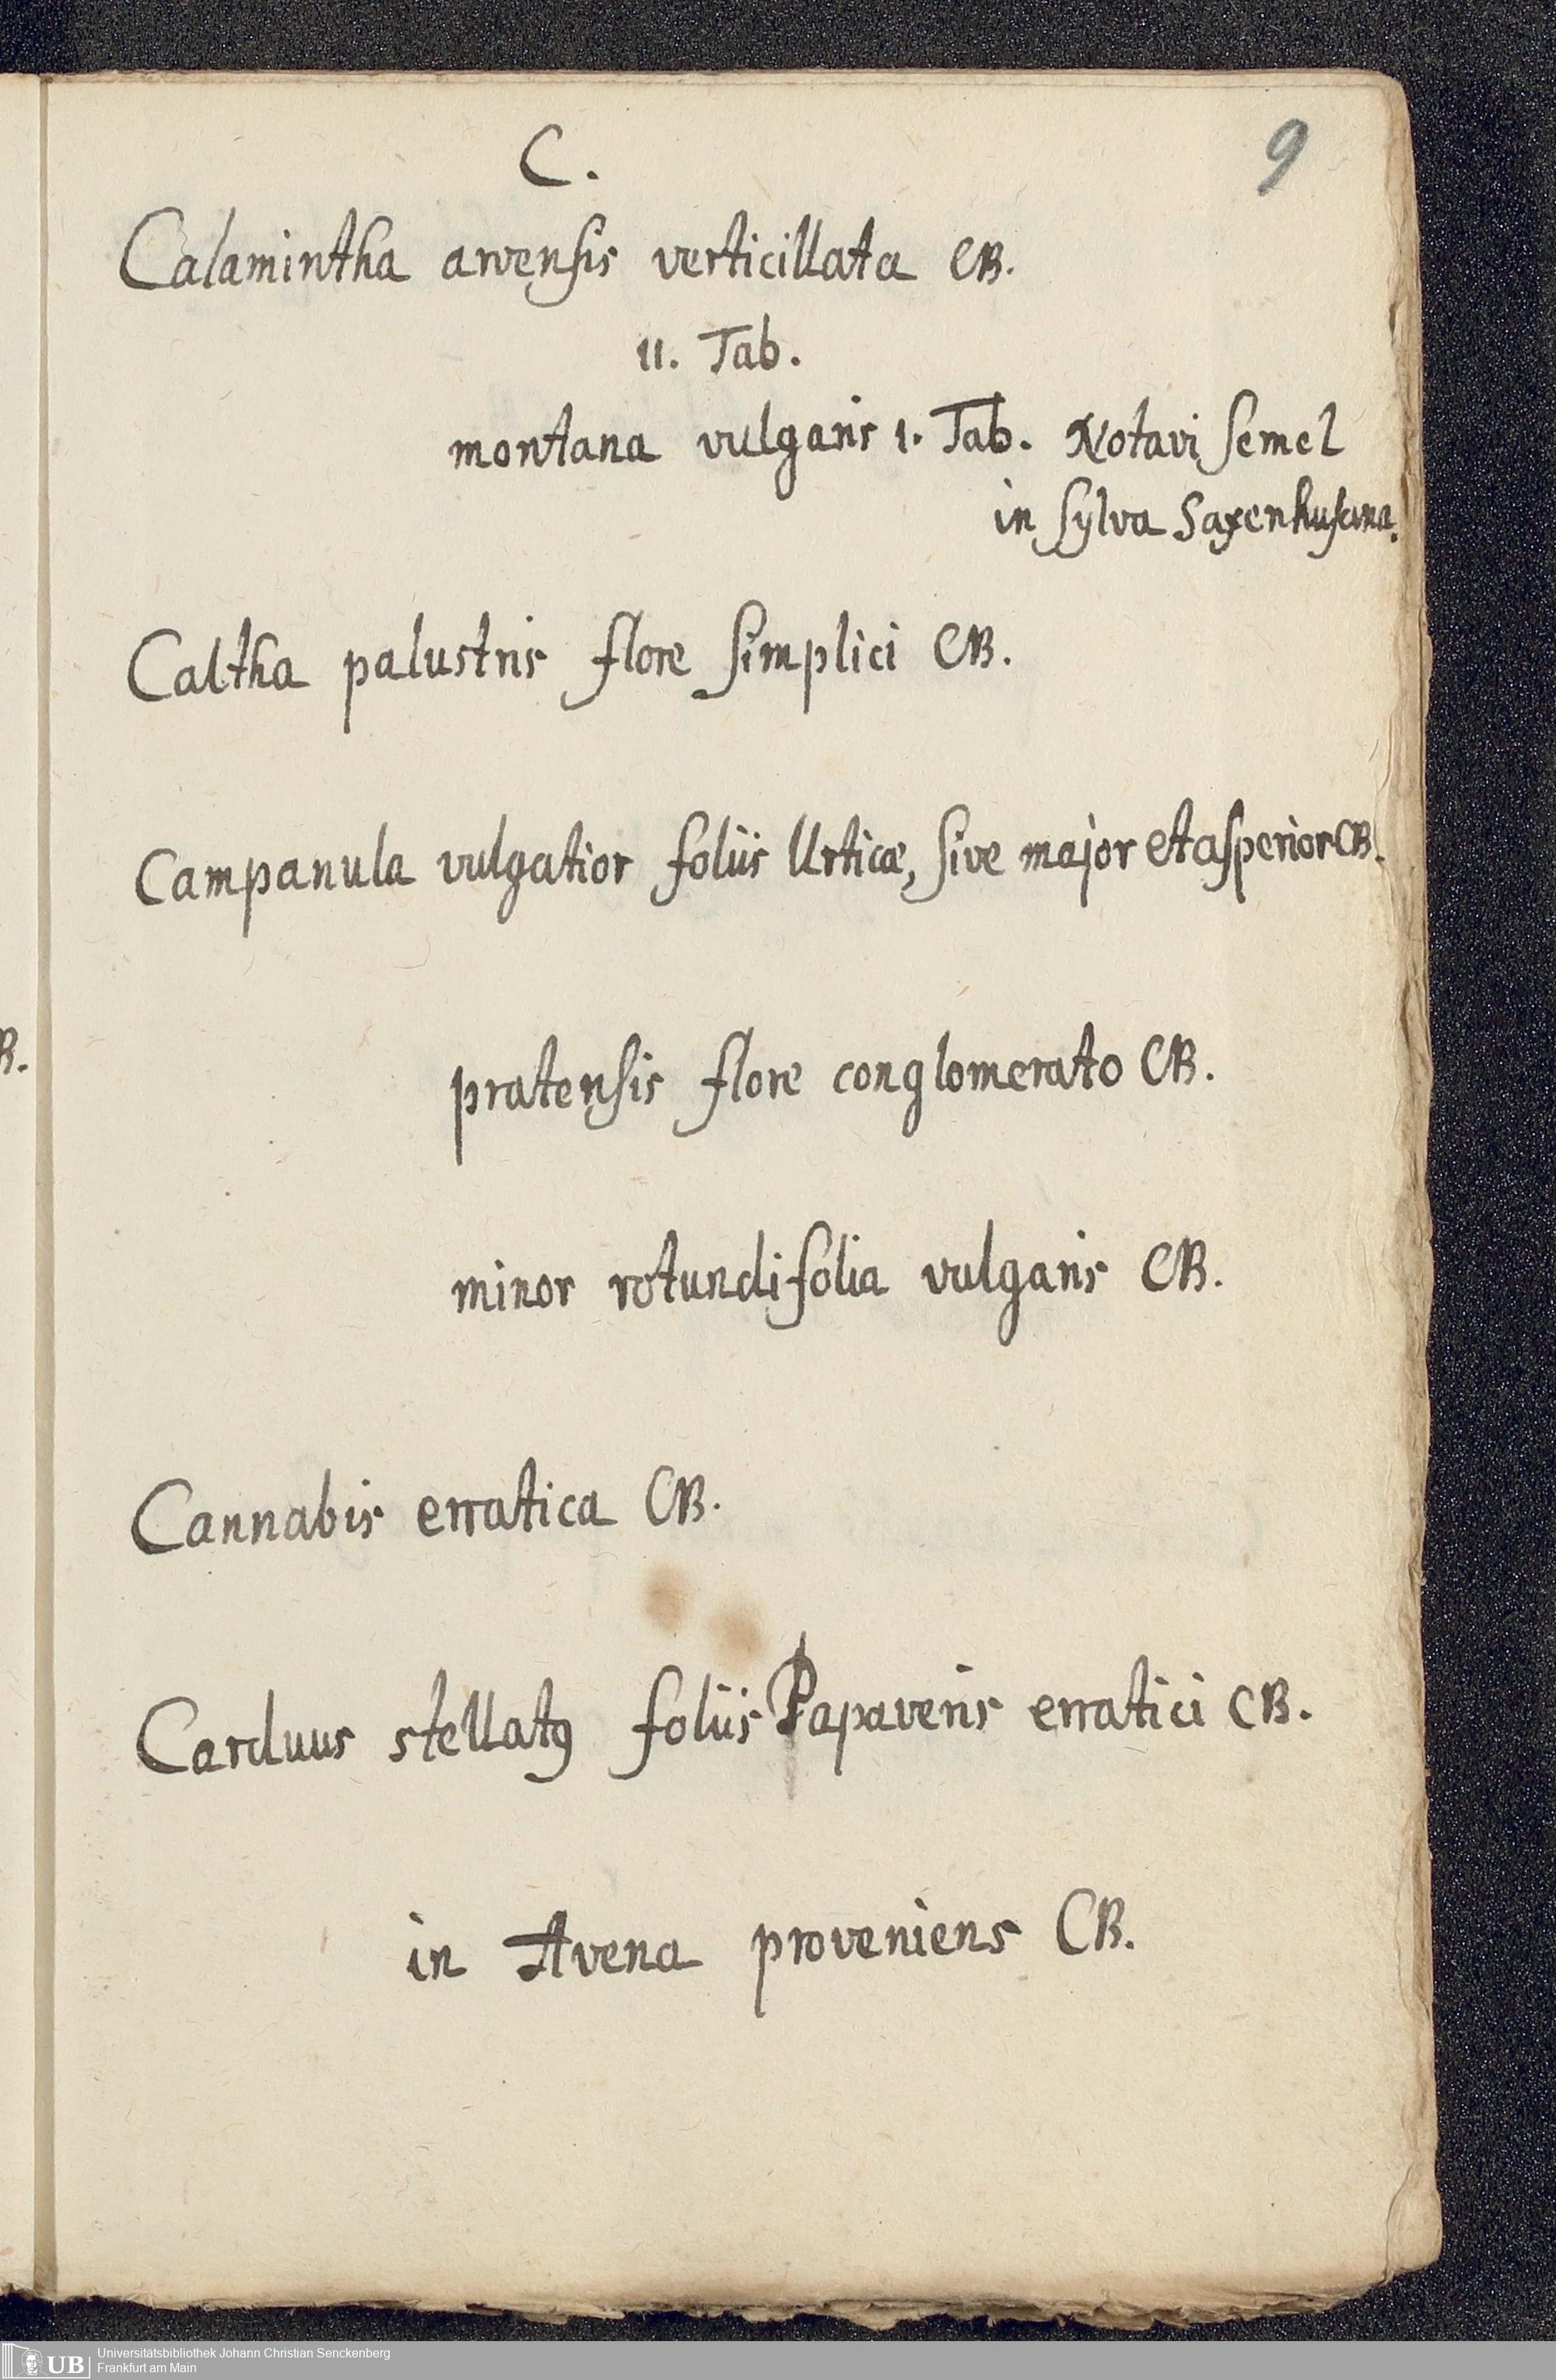 C.
9
Calamintha arvensis verticillata CB.
II. Tab.
montana vulgaris 1. Tab. Notavi semel
in sylva Saxenhusana.
Caltha palustris flore simplici CB.
Campanula vulgatior foliis Urticæ, sive major et asperior CB.
B.
pratensis flore conglomerato CB.
minor rotundifolia vulgaris CB.
Cannabis erratica CB.
Carduus stellatꝰ foliis Papaveris erratici CB.
in Avena proveniens CB.
UB
Universitätsbibliothek Johann Christian Senckenberg
Frankfurt am Main